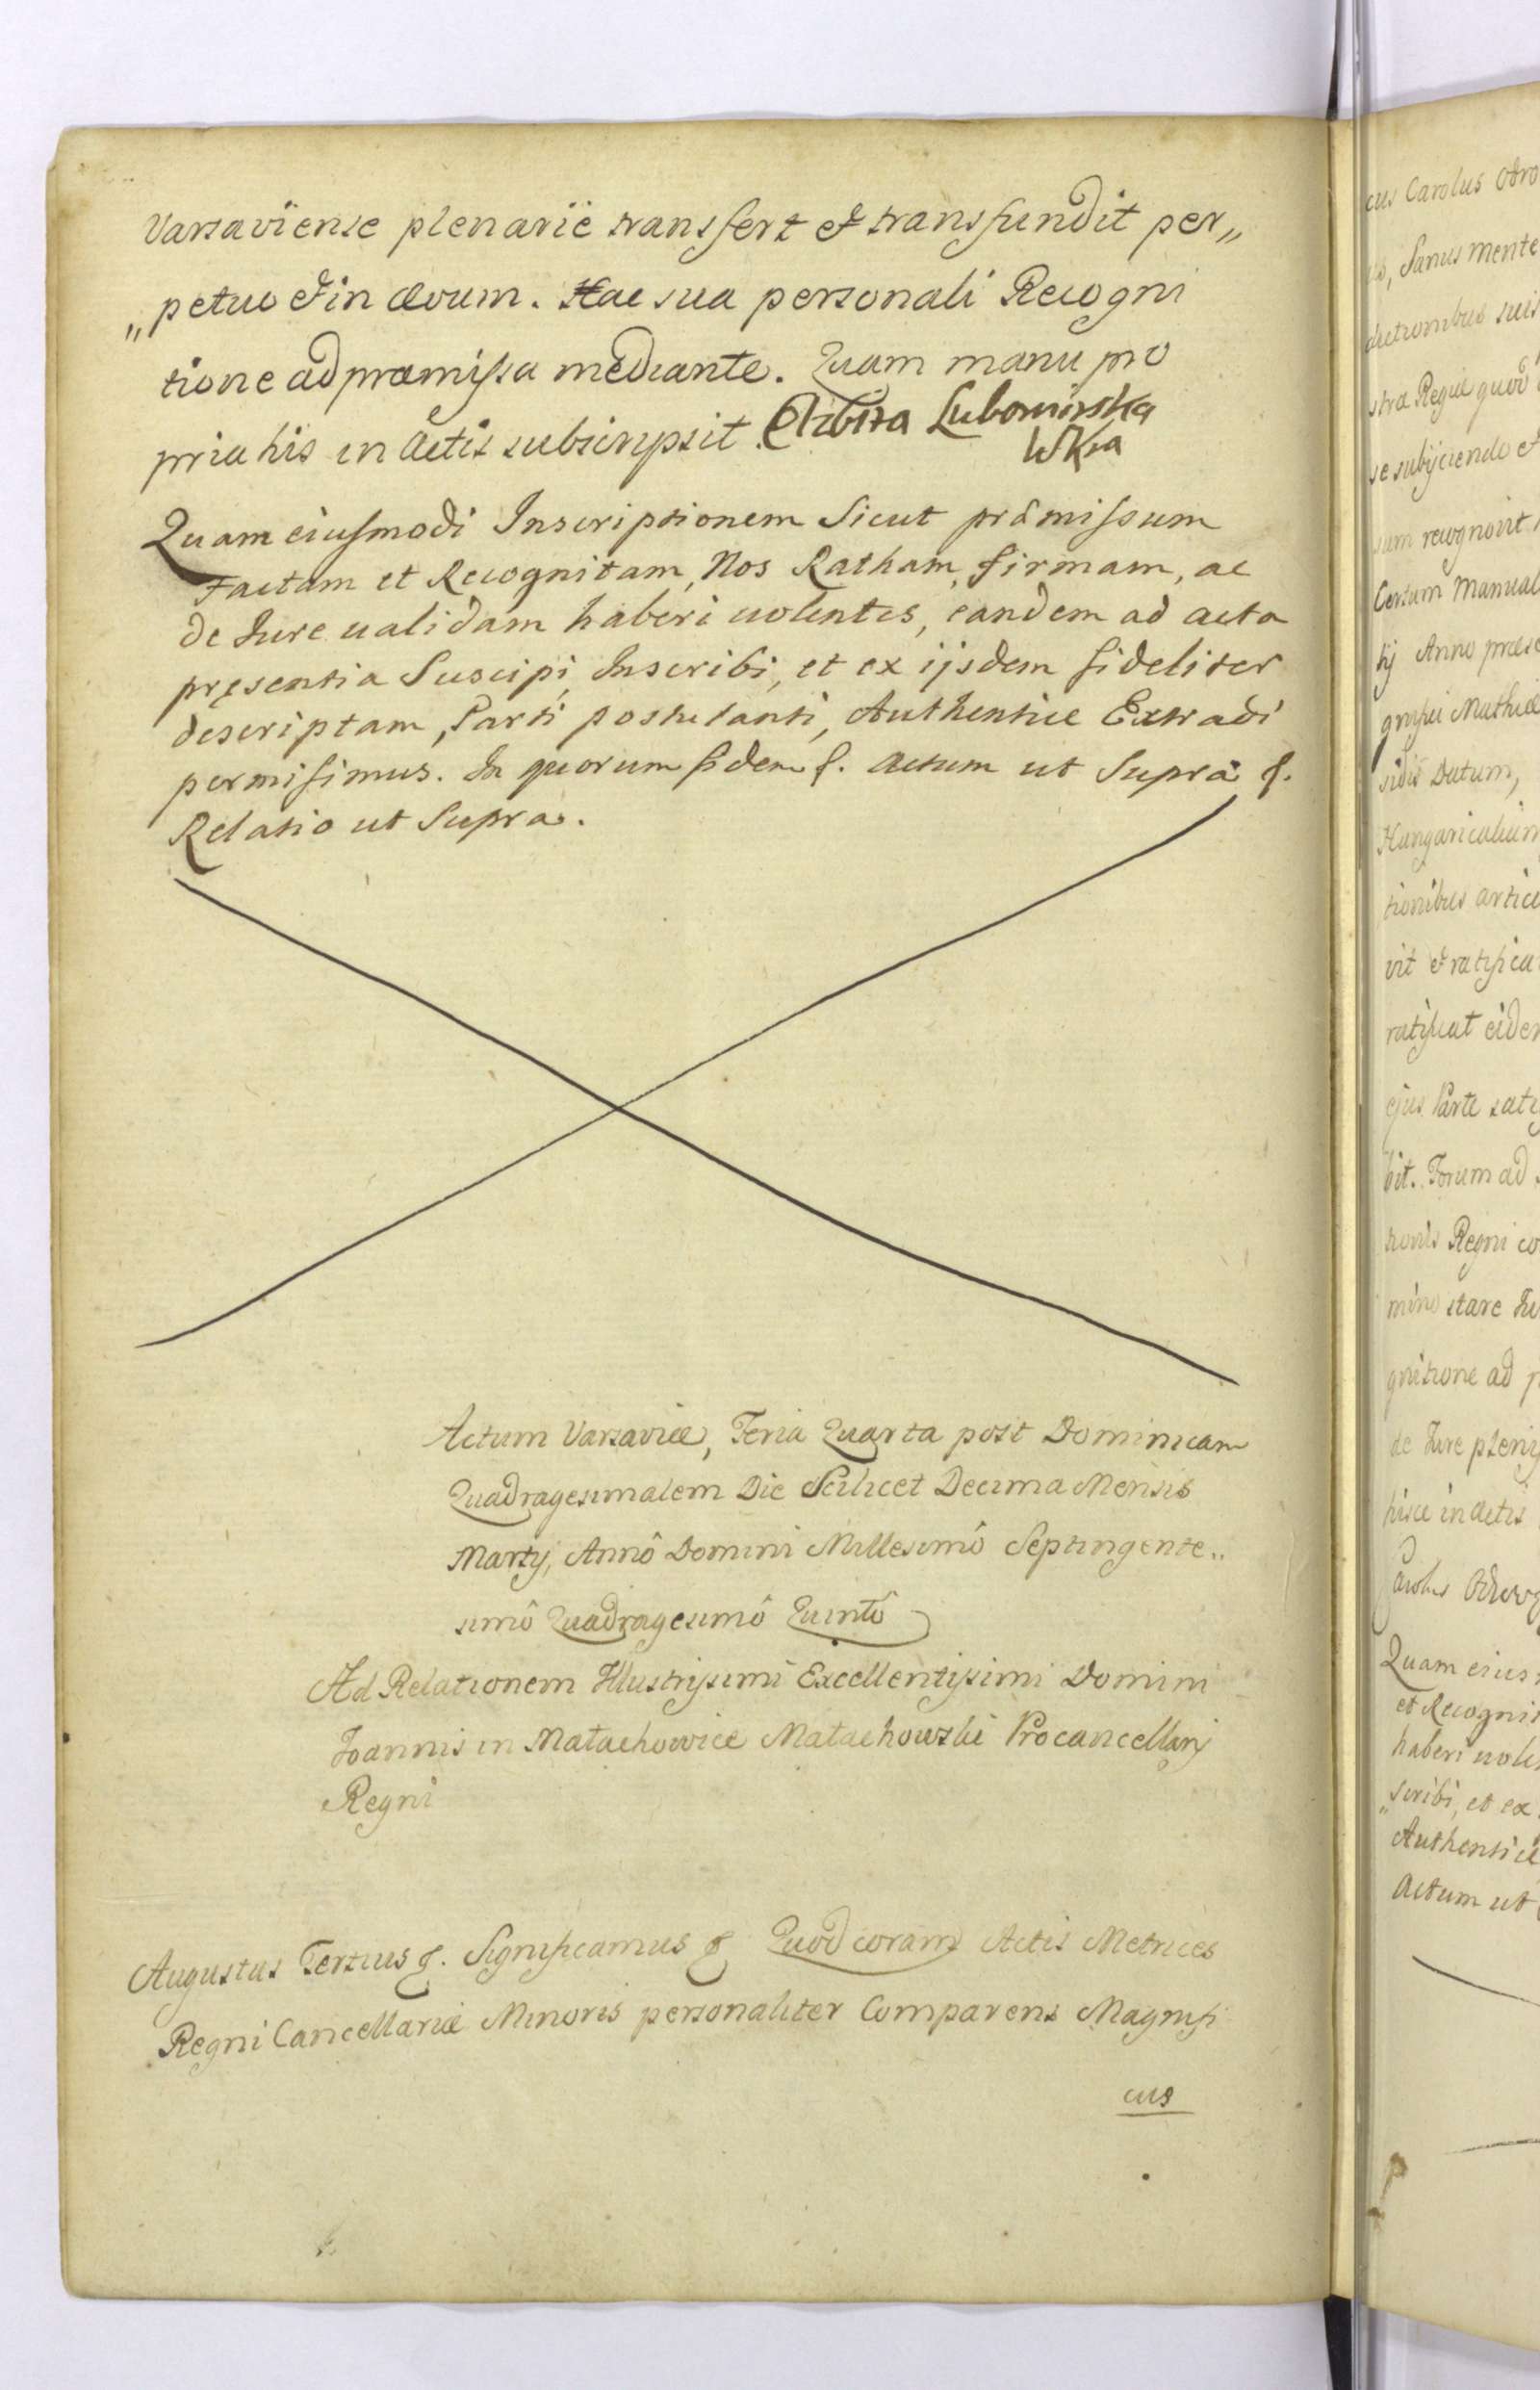 Varsaviense plenariè transfert et transfundit per„
„petuo et in ævum. Hac sua personali Recogni
tione ad præmissa mediante. Quam manu pro
pria his in Actis subscripsit. Elzbita Lubomirska
WKra
Quam eiusmodi Inscriptionem Sicut præmissum
Factam et Recognitam, Nos Ratham, firmam, ac
de Jure ualidam haberi uolentes, eandem ad acta
pręsentia Suscipi, Inscribi, et ex ijsdem fideliter
descriptam, Parti postulanti, Authentice Extradi
permisimus. In quorum fidem &. Actum ut Supra &.
Relatio ut Supra.
Actum Varsaviæ, Feria Quarta post Dominicam
Quadragesimalem Die Scilicet Decima Mensis
Martij, Annô Domini Millesimô Septingente„
simô Quadragesimô Quintô
Ad Relationem Illustrissimi Excellentissimi Domini
Joannis in Małachowice Małachowski Procancellarij
Regni
Augustus Tertius &. Significamus & Quod coram Actis Metrices
Regni Cancellariæ Minoris personaliter Comparens Magnifi
cus
cus Carolus Odro
Sanus mente
suis
stræ Regiæ quod
se subijciendo et
recognovit
Manual
tij Anno præse
Datum,
Hungaricalium
tionibus artic
vit et ratifica
ratificat eidem
ejus Parte sati
bit. Forum ad
Regni co
stare Ju
gnitione ad p
de Jure pleni
hisce in Actis
Carolus
Quam eius
et Recogni
haberi uole
„scribi, et ex
Authentice
Actum ut